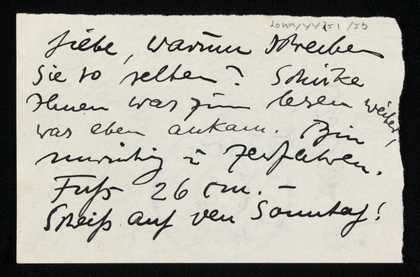 Liebe, warum schreiben
Sie so selten? Schicke
Ihnen was zum lesen weiter,
was eben ankam. Bin
unruhig u zerfahren.
Fuß 26 cm. –
Scheiß auf den Sonntag!